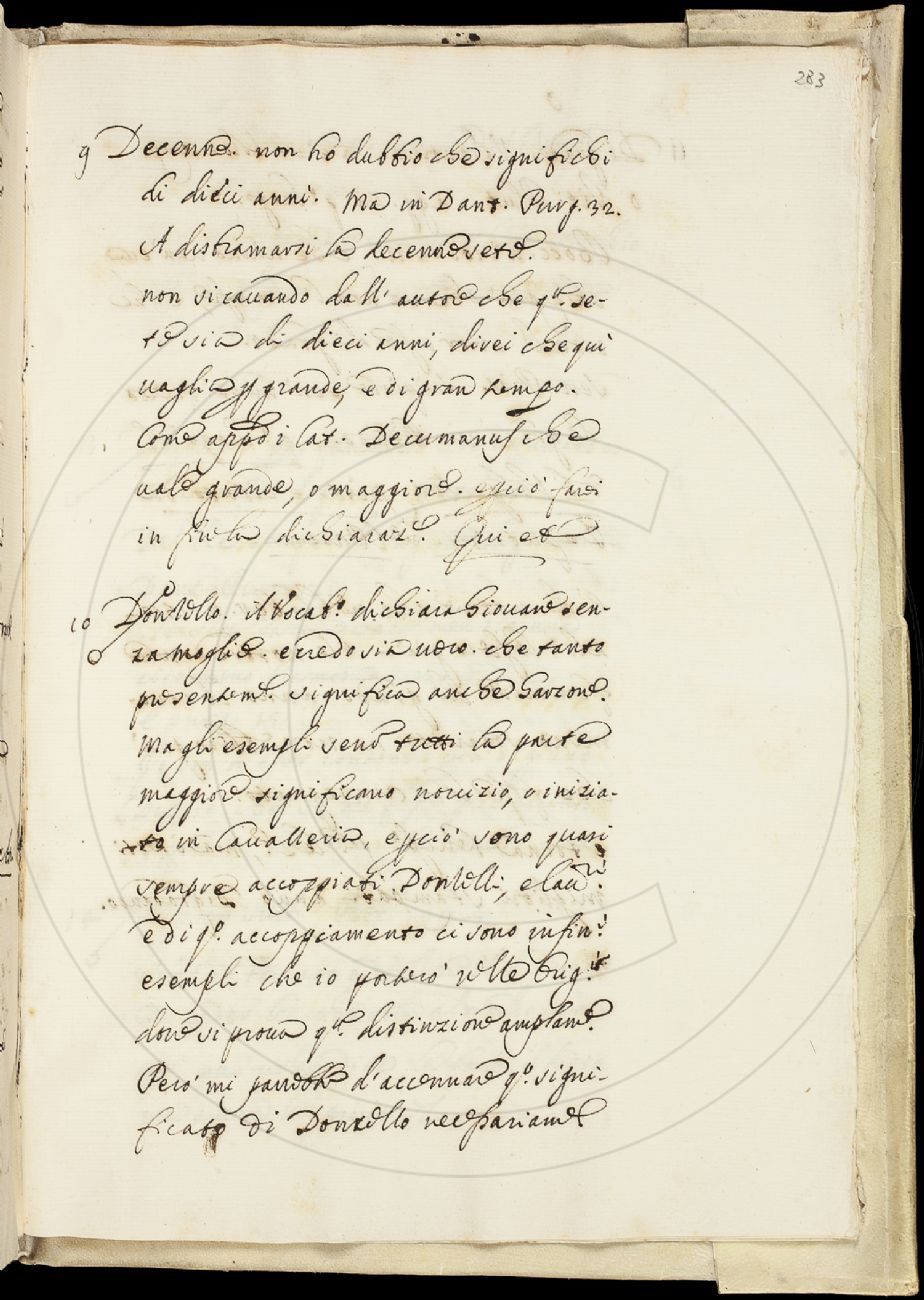 283
9 Decenne. non ho dubbio che significhi
di dieci anni. Ma in Dant. Purg. 32.
A disbramarsi la decenne sete.
non si cavando dall' autore che q.ta se-
te sia di dieci anni, direi che qui
vaglia p grande, e di gran tempo.
Come app.o i Lat. Decumanus che
vale grande, o maggiore. e p ciò farei
in fine la dichiaraz.e. Qui et
10 Donzello. il Vocab.o dichiara Giovane sen-
za moglie. e credo sia vero. che tanto
presentem.e significa anche Garzone.
Ma gli esempli se no tutti la parte
maggiore significano novizio, o inizia-
to in Cavalleria, e p ciò sono quasi
sempre accoppiati Donzelli, e Cav.ri.
e di q.o accoppiamento ci sono infin.i
esempli che io porterò nelle Orig.i
dove si prova q.ta distinzione amplam.e.
Però mi parrebbe d'accennare q.o signi-
ficato di Donzello necessariame